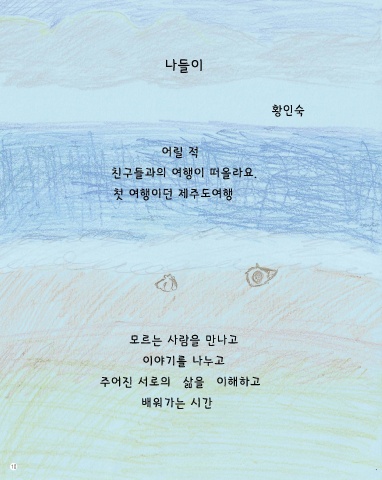 나들이
황인숙
어릴 적
친구들과의 여행이 떠올라요.
첫 여행이던 제주도여행
모르는 사람을 만나고
이야기를 나누고
주어진 서로의 삶을 이해하고
배워가는 시간